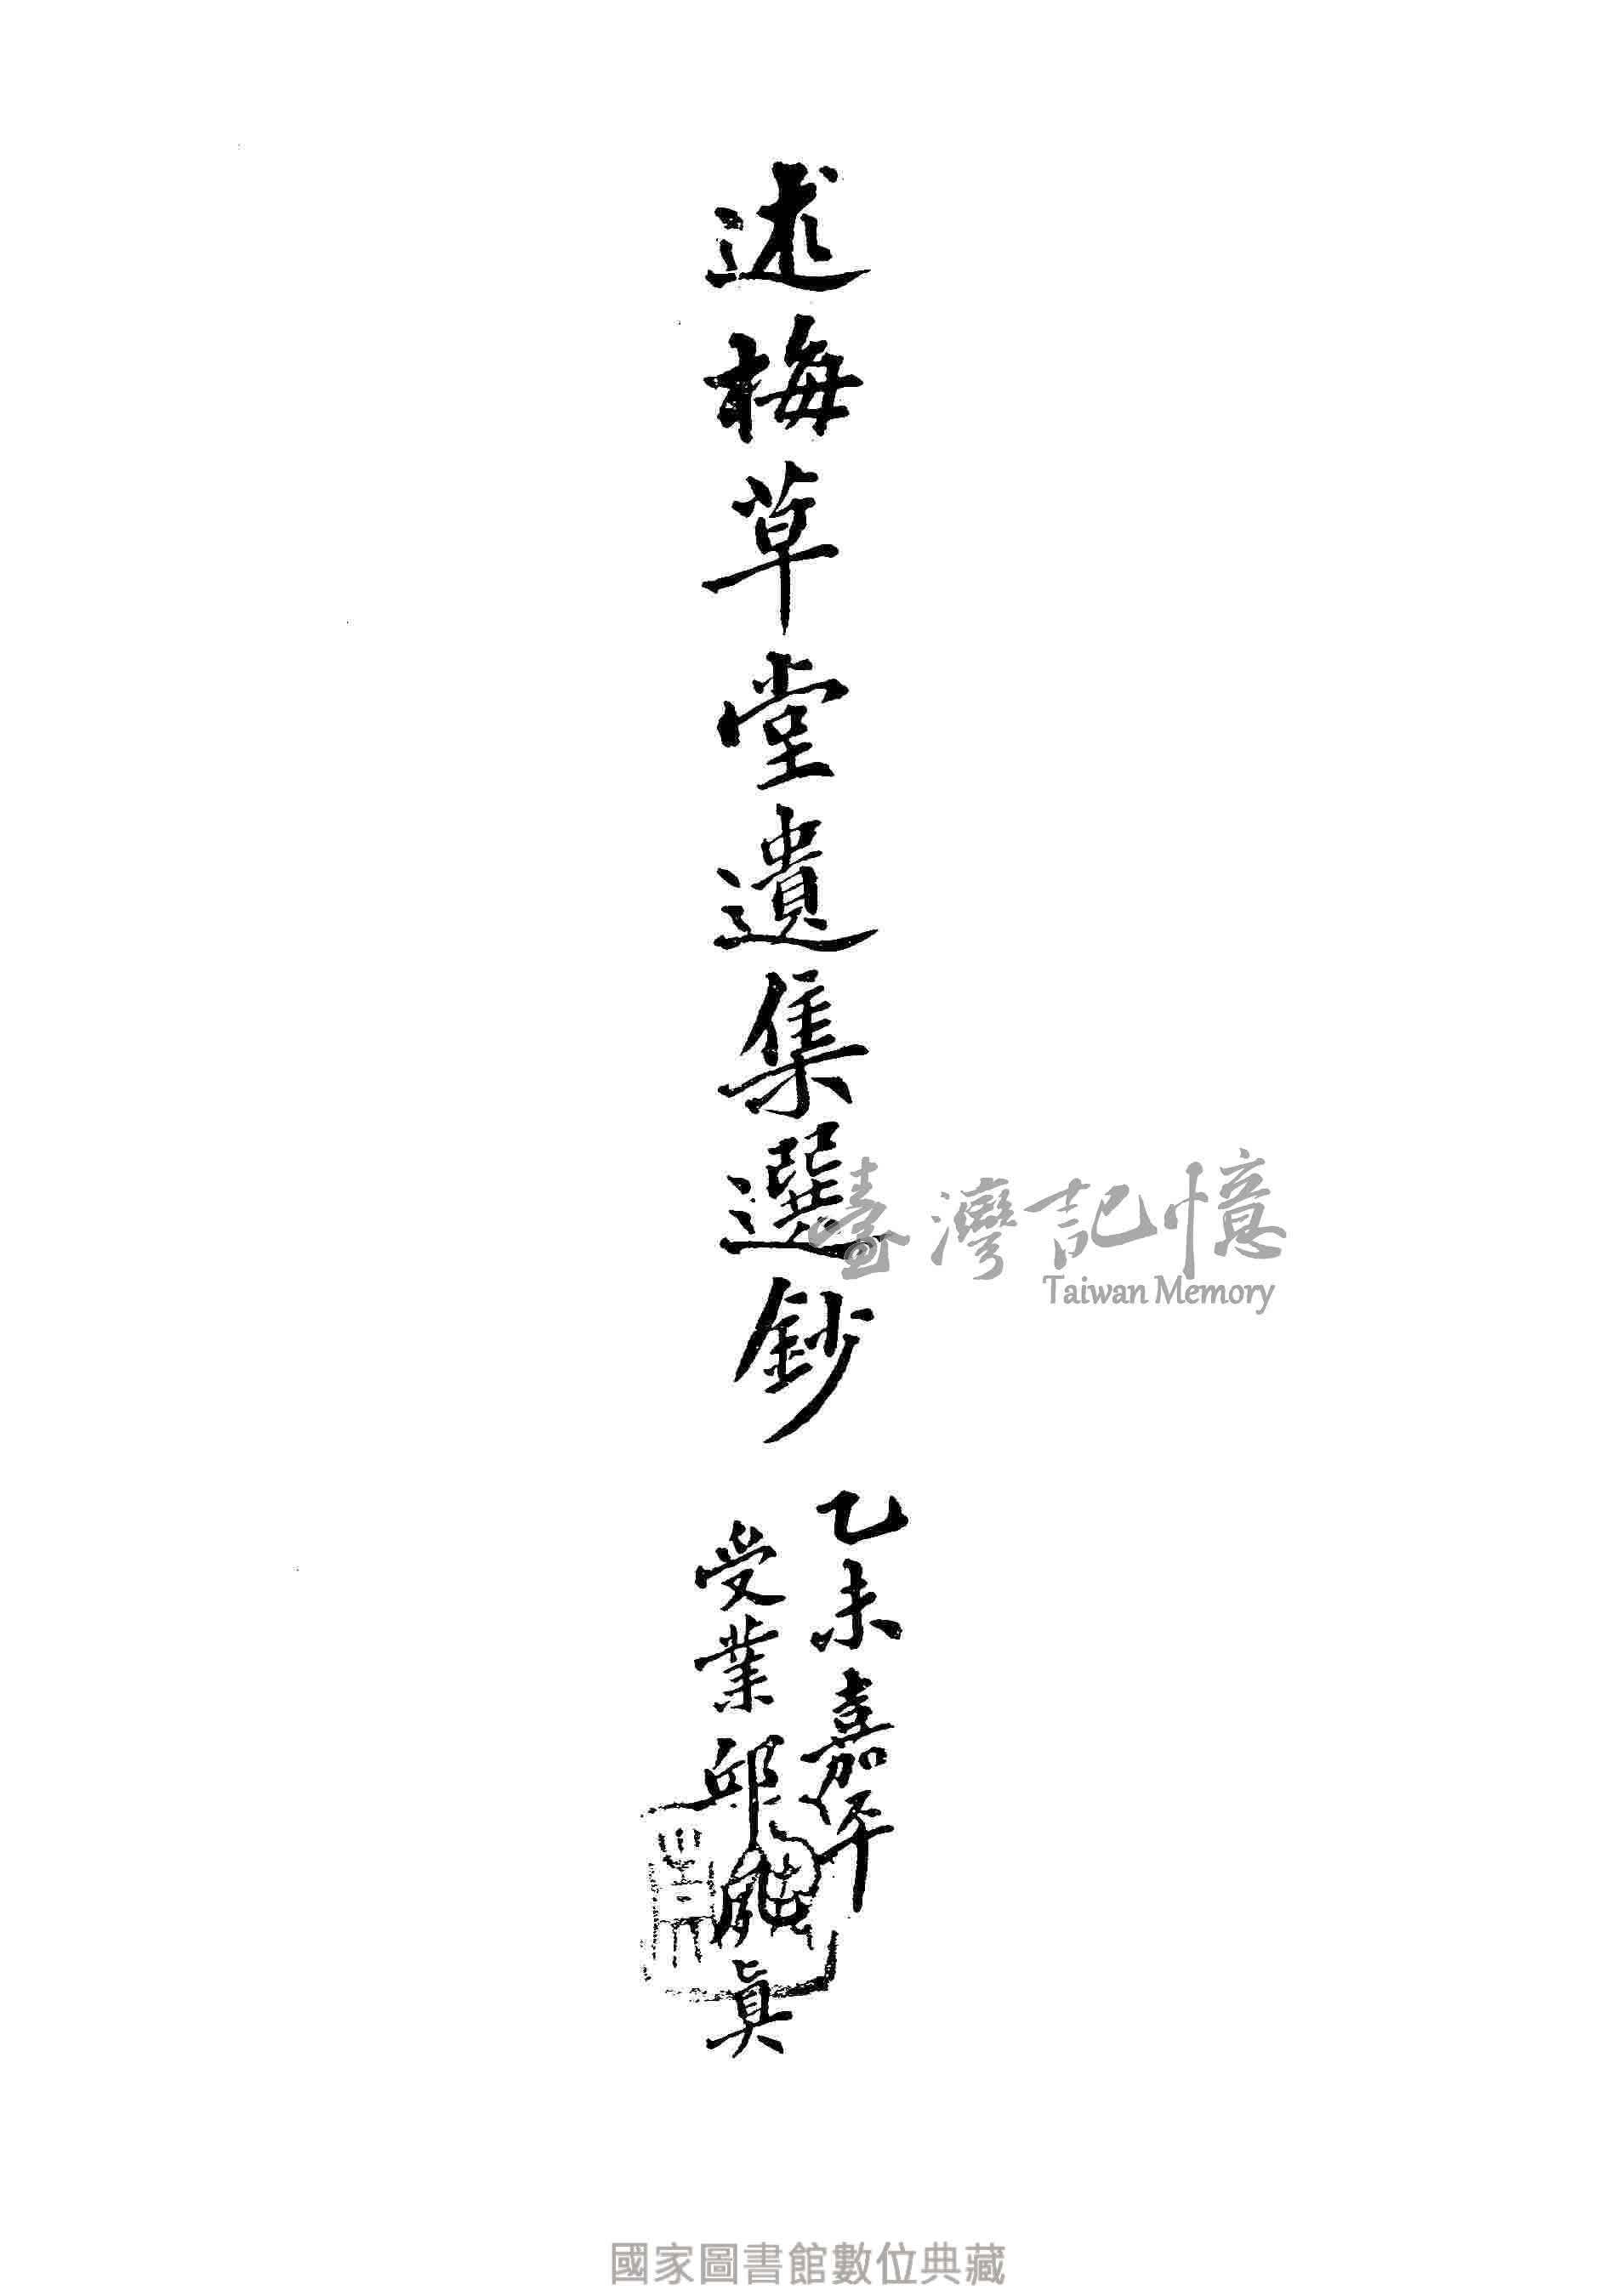 述梅草堂遺集選鈔
乙未嘉平
受業邱
真
臺灣記憶
Taiwan Memory
國家圖書館數位典藏